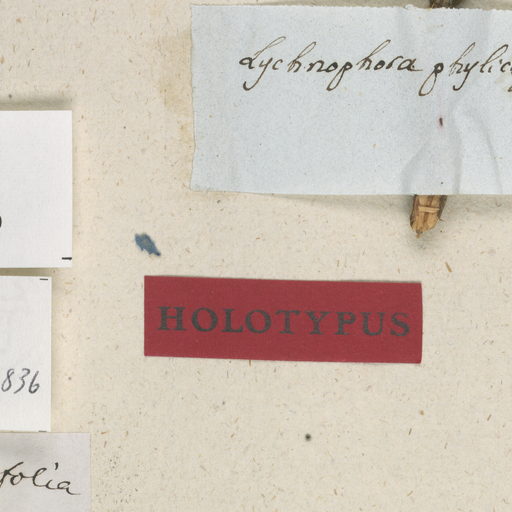 Lychnophora phylic
HOLOTYPUS
836
folia